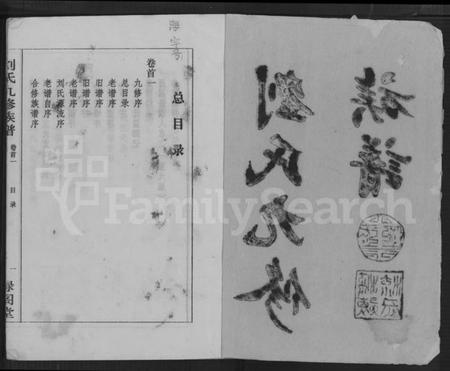 劉氏九修
族譜
卷首一
总目录
九修序
总目录
老谱序
旧谱序
旧谱序
老谱序
刘氏源流序
老谱自序
合修族谱序
刘氏九修族谱 卷首一 目录 一
阁堂
FamilySearch